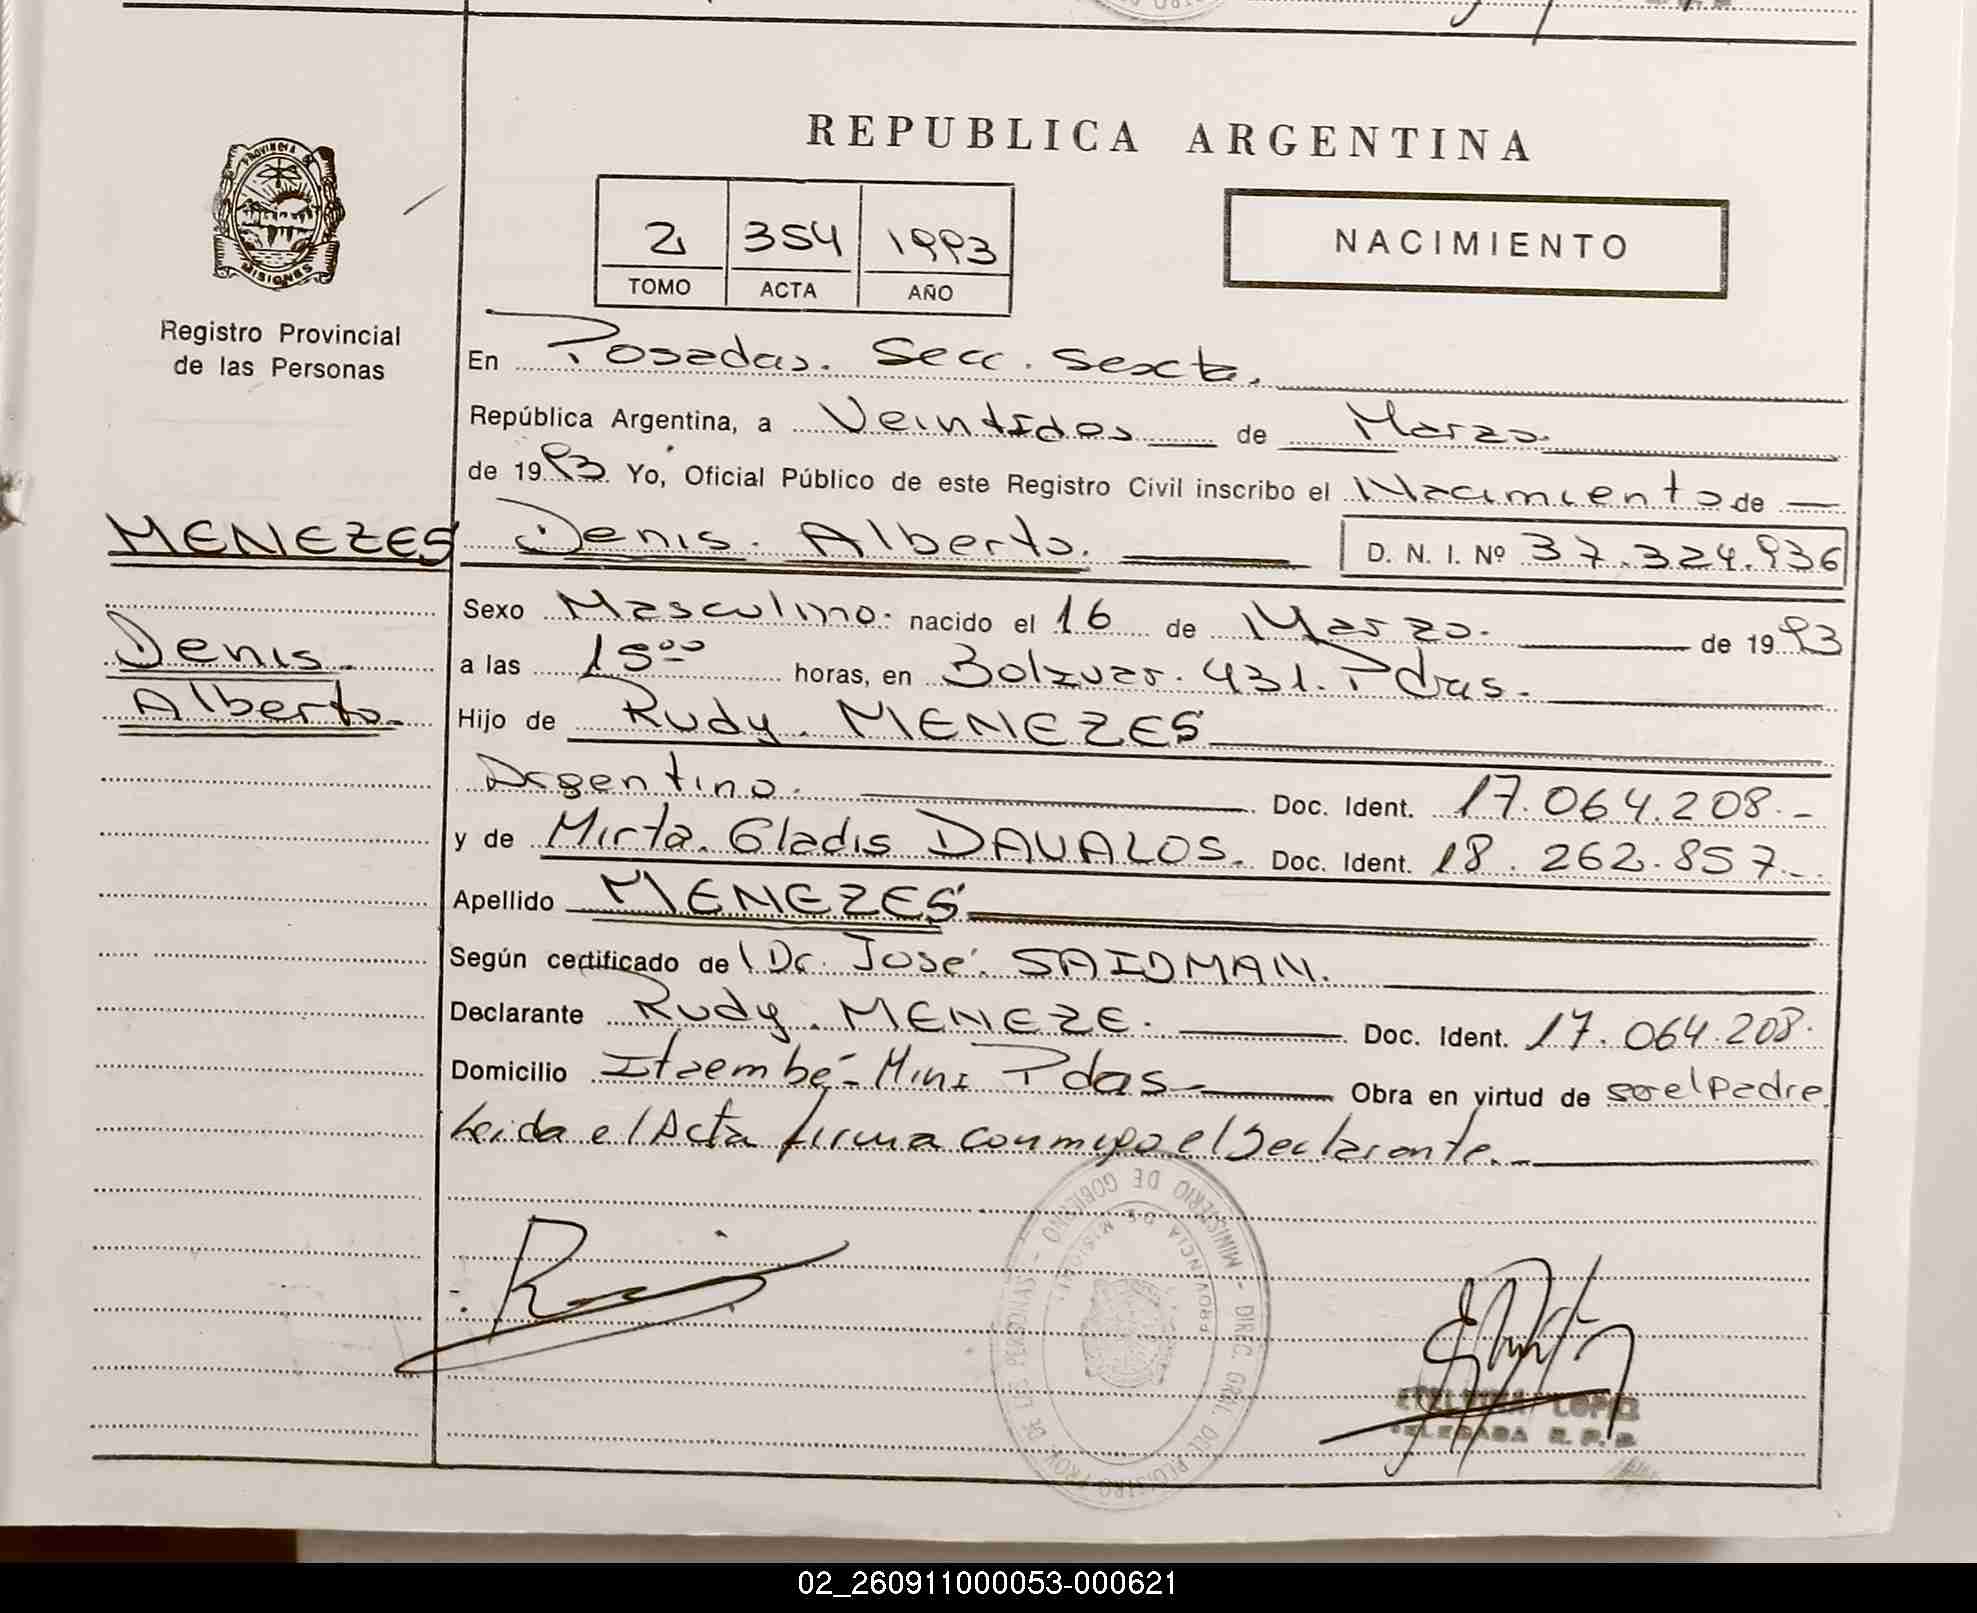 REPUBLICA ARGENTINA
PROVINCIA DE
MISIONES
Registro Provincial
de las Personas
2 354 1993
TOMO ACTA AÑO
NACIMIENTO
En Posadas. Secc. Sexta.
República Argentina, a Veintidos de Marzo
de 1993. Yo, Oficial Público de este Registro Civil inscribo el Nacimiento de
MENEZES Denis. Alberto. D. N. I. Nº 37.324.936
Sexo Masculino. nacido el 16 de Marzo. de 1993
Denis
Alberto.
a las 15⁰⁰ horas, en Bolívar. 431. Pdas.
Hijo de Rudy. MENEZES
Argentino. Doc. Ident. 17.064.208.-
y de Mirta. Gladis DAVALOS. Doc. Ident. 18.262.857.-
Apellido MENEZES
Según certificado de l Dr. José. SAIDMAN.
Declarante Rudy. MENEZE. Doc. Ident. 17.064.208.
Domicilio Itaembé-Mini Pdas. Obra en virtud de ser el padre.
Leida el Acta firma conmigo el Declarante.-
MINISTERIO DE GOBIERNO - DIREC. GRAL. DEL REGISTRO PROV. DE LAS PERSONAS -
PROVINCIA DE MISIONES
ETELVINA LOPEZ
DELEGADA R. P. P.
02_260911000053-000621